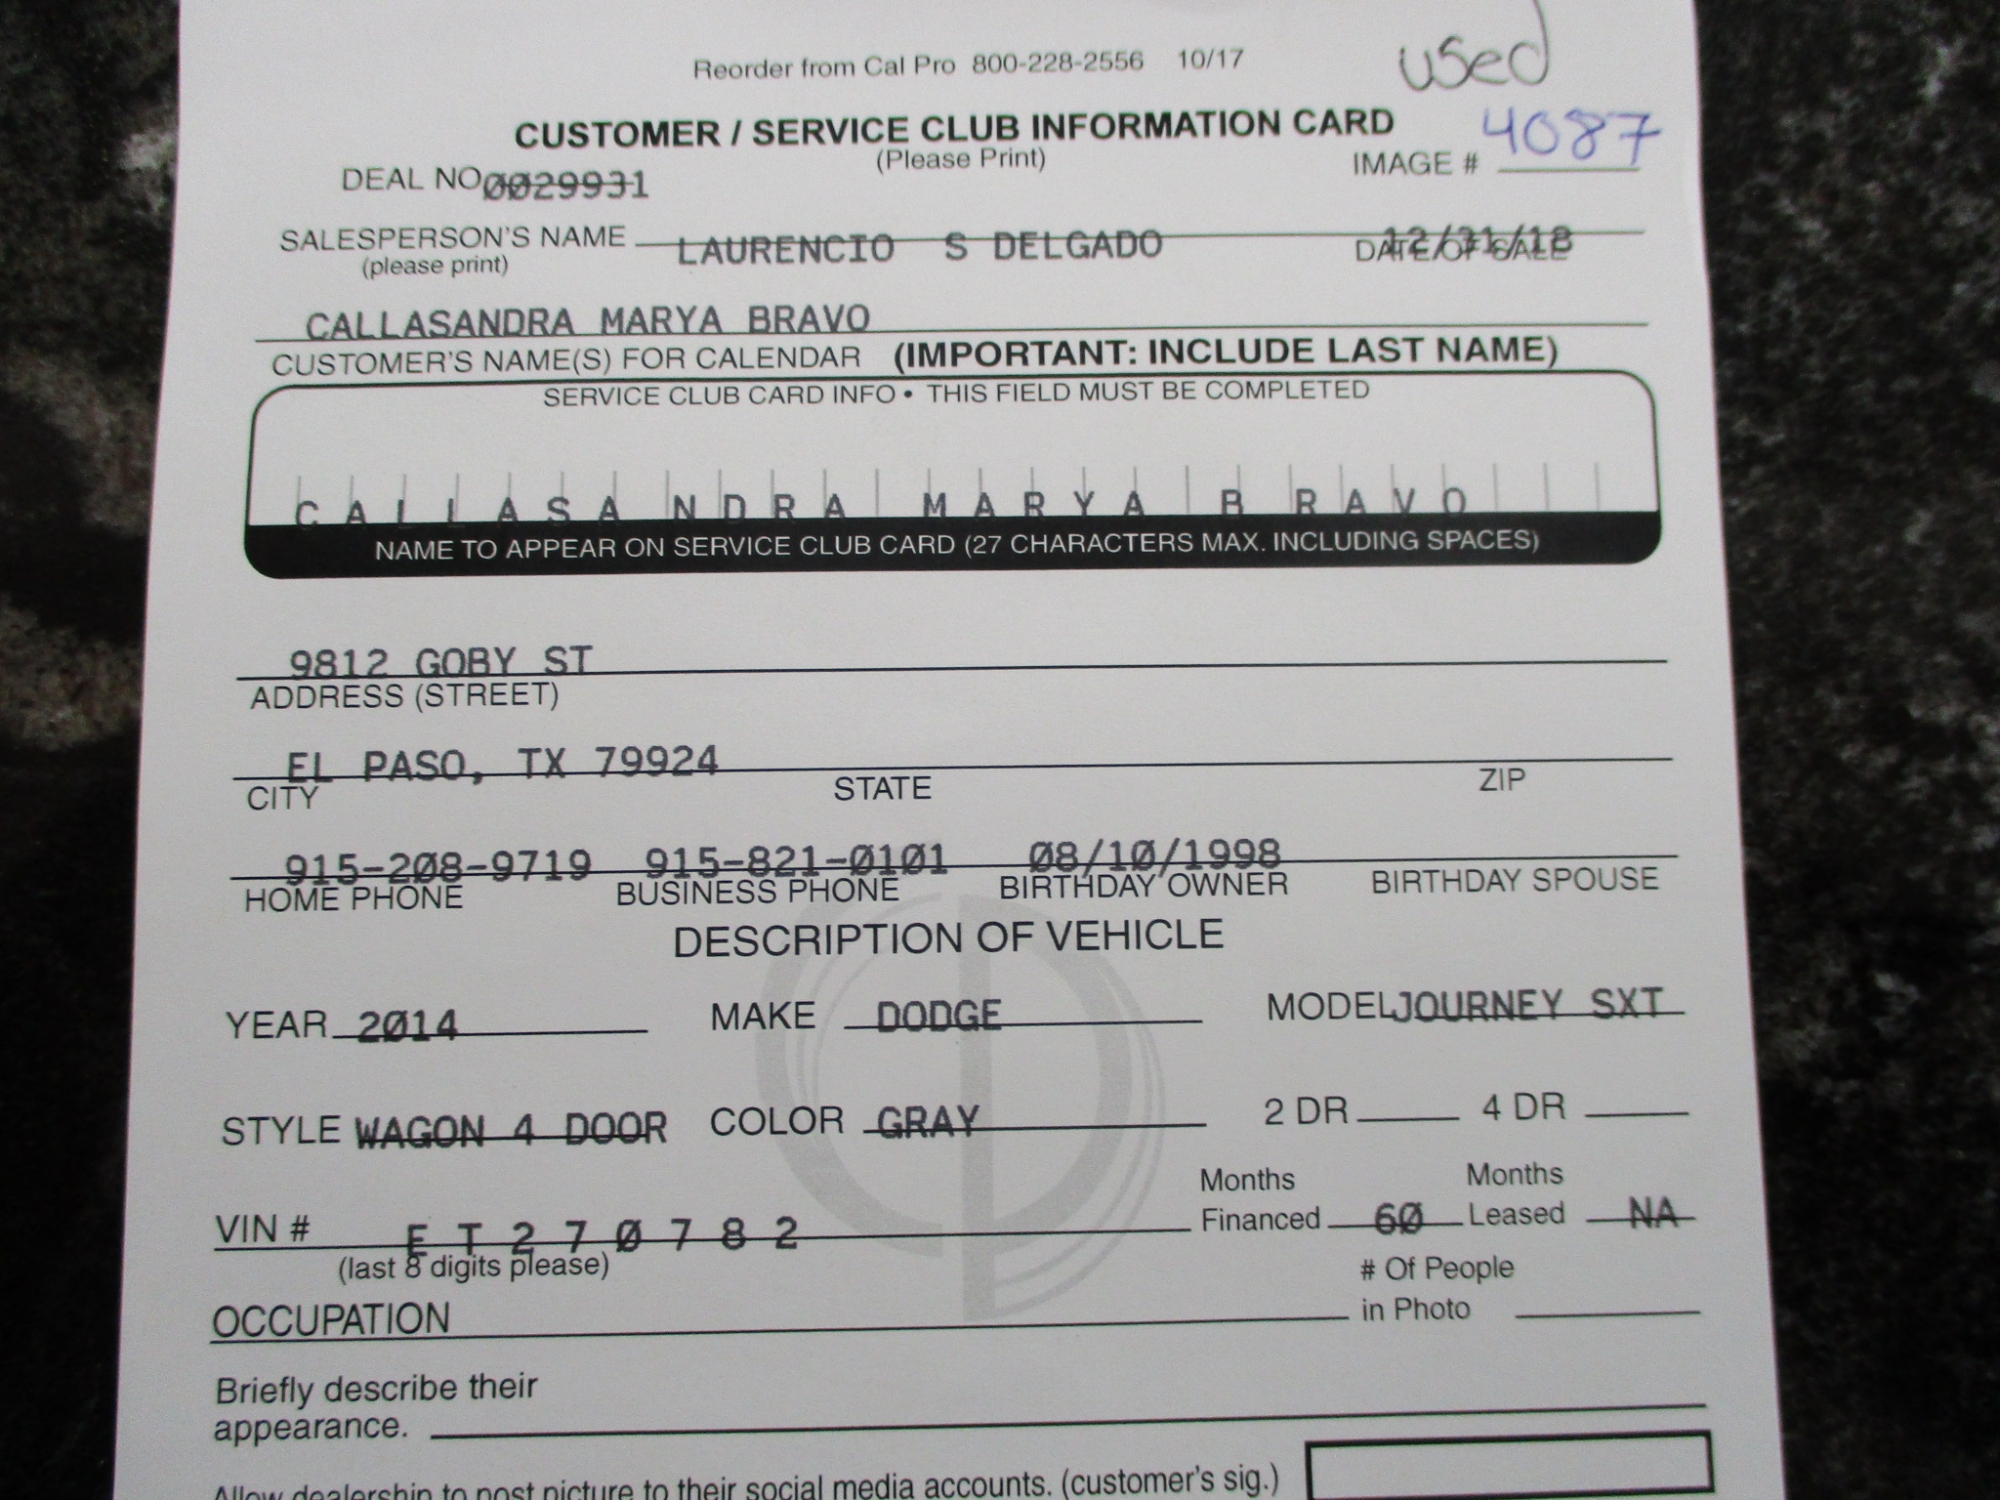 used
Reorder from Cal Pro 800-228-2556 10/17
CUSTOMER / SERVICE CLUB INFORMATION CARD
(Please Print)
IMAGE # 4087
DEAL NO 0029931
SALESPERSON'S NAME LAURENCIO S DELGADO DATE OF SALE 12/31/18
(please print)
CALLASANDRA MARYA BRAVO
CUSTOMER'S NAME(S) FOR CALENDAR (IMPORTANT: INCLUDE LAST NAME)
SERVICE CLUB CARD INFO • THIS FIELD MUST BE COMPLETED
CALLASANDRA MARYA BRAVO
NAME TO APPEAR ON SERVICE CLUB CARD (27 CHARACTERS MAX. INCLUDING SPACES)
9812 GOBY ST
ADDRESS (STREET)
EL PASO, TX 79924
CITY STATE ZIP
915-208-9719 915-821-0101 08/10/1998
HOME PHONE BUSINESS PHONE BIRTHDAY OWNER BIRTHDAY SPOUSE
DESCRIPTION OF VEHICLE
YEAR 2014 MAKE DODGE MODEL JOURNEY SXT
STYLE WAGON 4 DOOR COLOR GRAY 2 DR 4 DR
Months Months
VIN # ET270782 Financed 60 Leased NA
(last 8 digits please)
# Of People
OCCUPATION in Photo
Briefly describe their
appearance.
Allow dealership to post picture to their social media accounts. (customer's sig.)